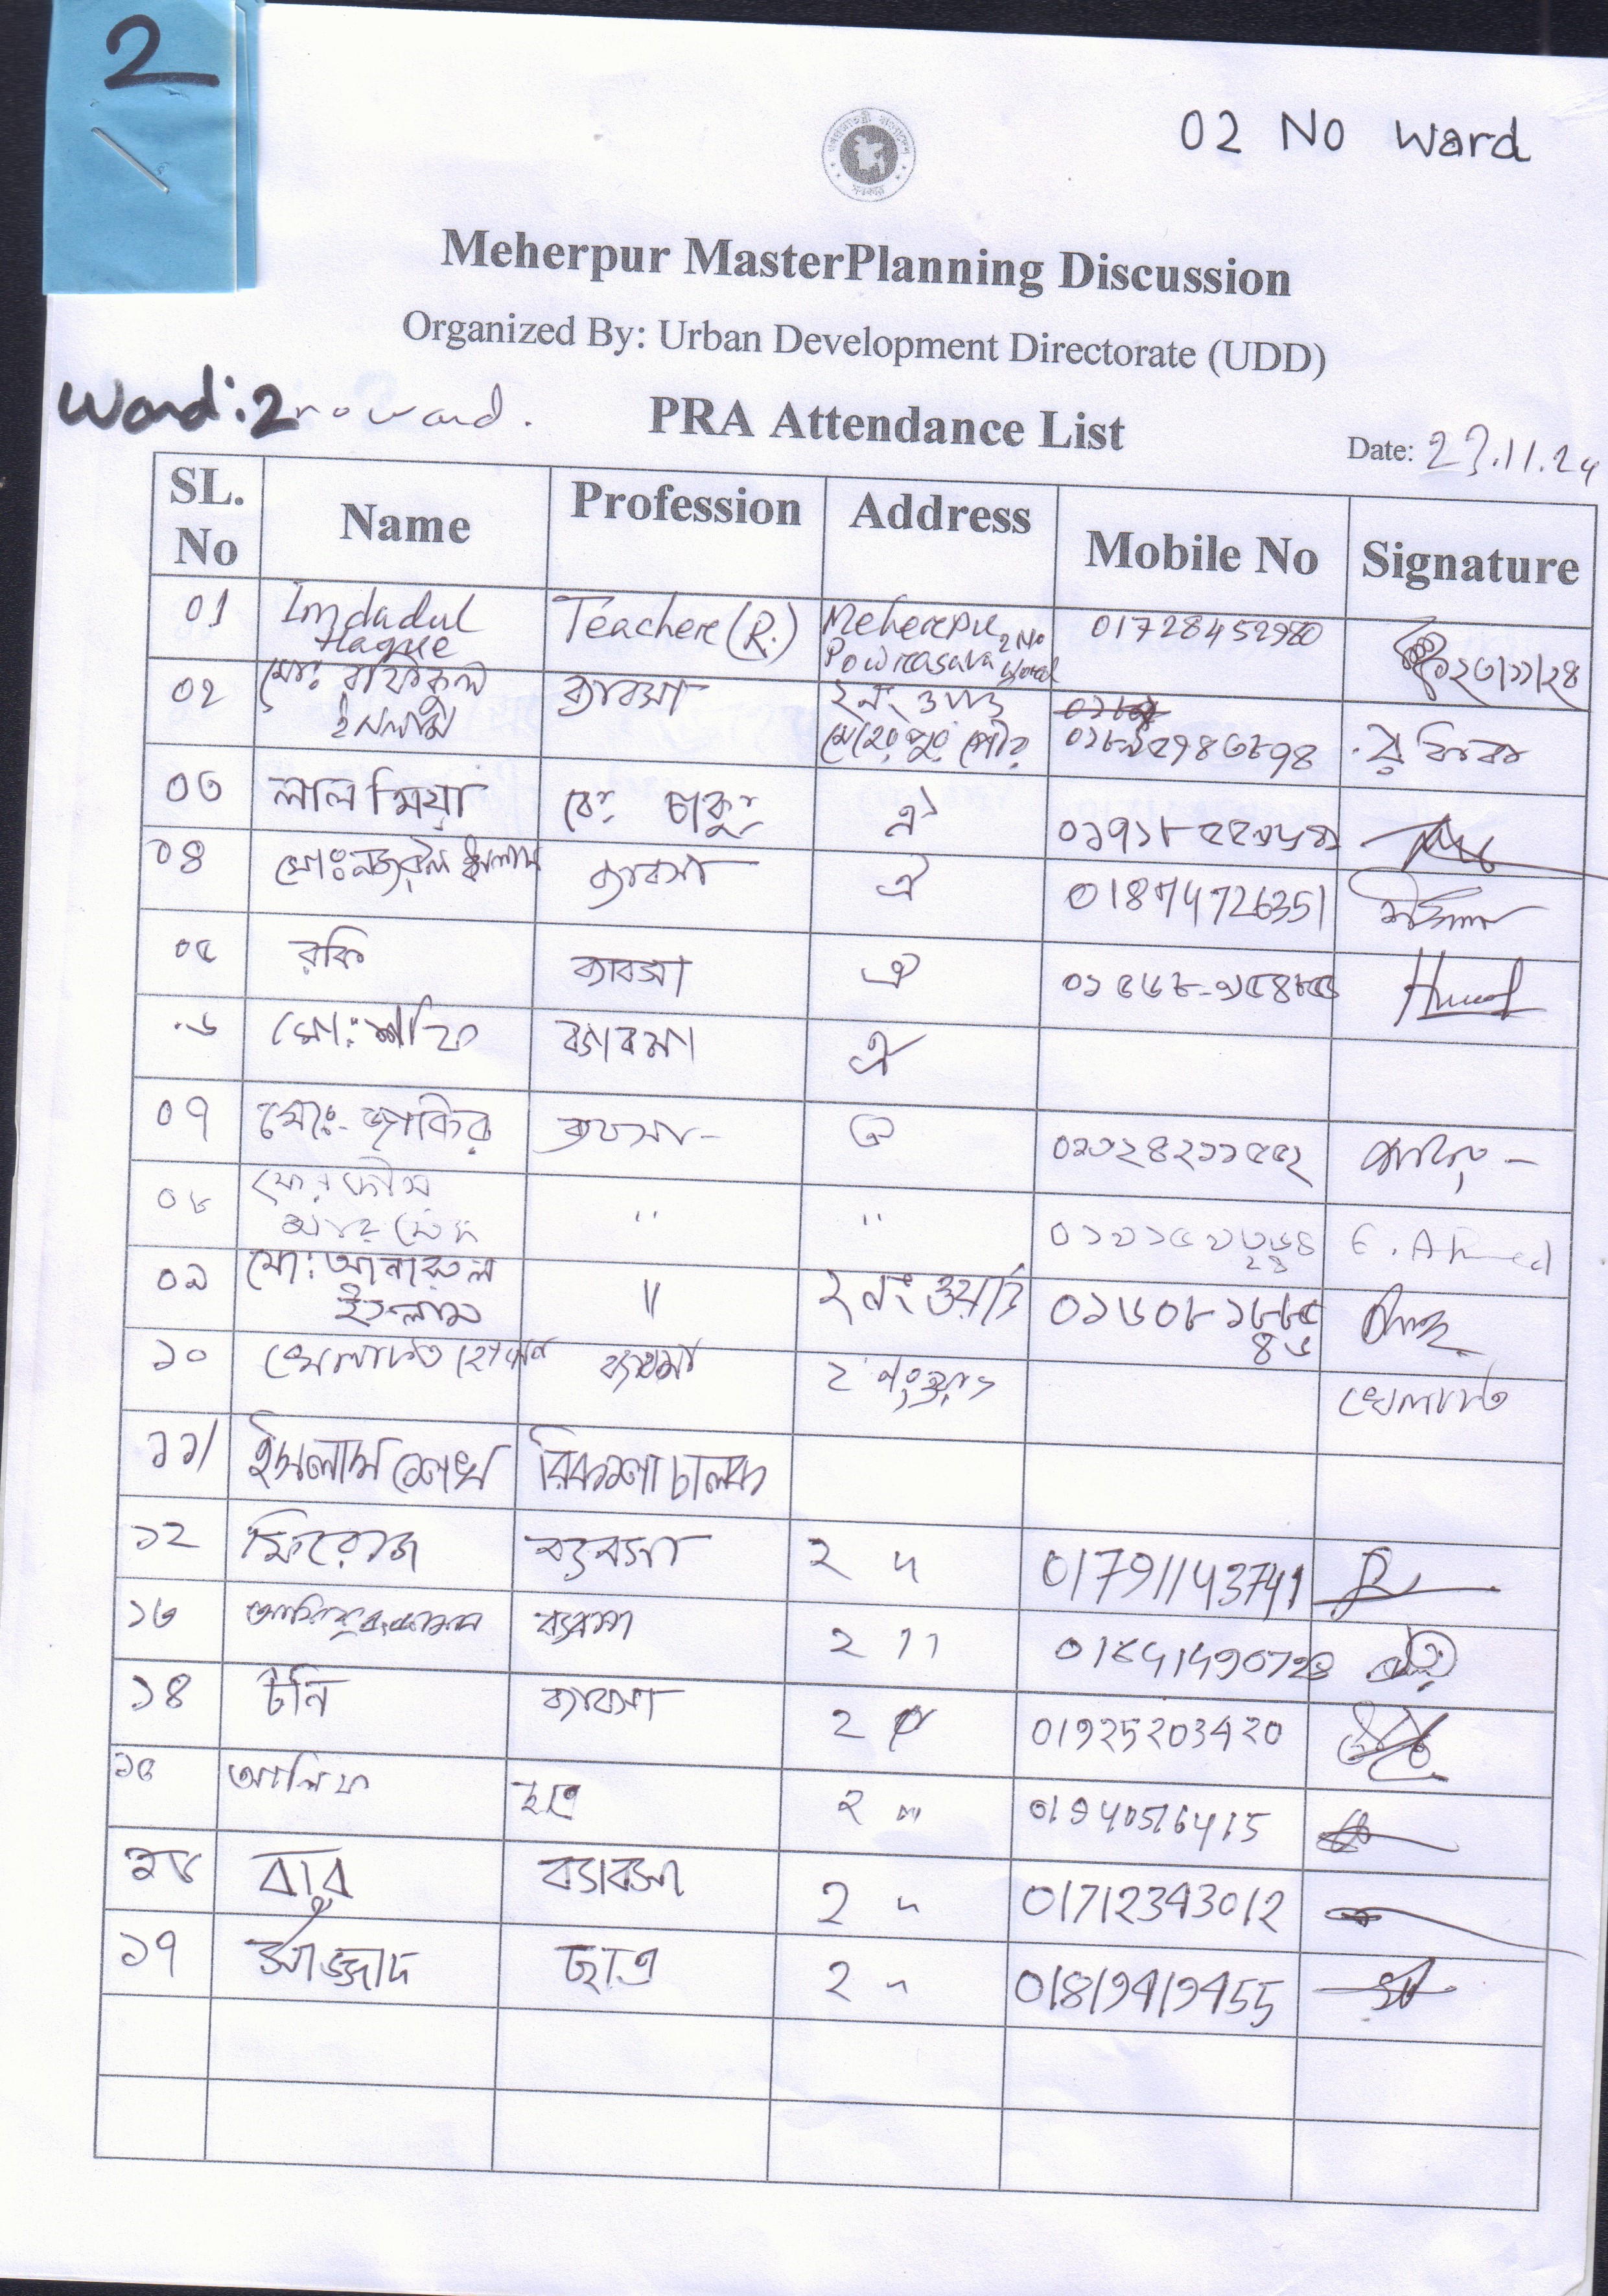 2
02 No Ward
Meherpur MasterPlanning Discussion
Organized By: Urban Development Directorate (UDD)
Ward: 2 no ward.
PRA Attendance List
Date: 23.11.24
SL. No Name Profession Address Mobile No Signature
01 Imdadul Haque Teachere (R.) Meherepur Powrasava 2 No Ward 01728452980 ২৩/১১/২৪
০২ মোঃ রফিকুল ইসলাম ব্যাবসা ২নং ওয়ার্ড মেহেরপুর পৌর
০৩ লাল মিয়া ঐ
০৪ মোঃ নজরুল ইসলাম ব্যাবসা ঐ 01874726351
০৫ রকি ব্যাবসা ঐ
০৬ মোঃ শাফি ব্যাবসা ঐ
০৭ মোঃ জাকির ব্যবসা ঐ
০৮ " " E. Ahmed
০৯ মোঃ আনারুল ইসলাম " ২ নং ওয়ার্ড ০১৬০৮১৮৮৫৪৬
১০ খেলাফত হোসেন ব্যাবসা ২ নং ওয়ার্ড খেলাফত
১১/ ইসলাম শেখ রিকশা চালক
১২ ফিরোজ ব্যবসা ২ " 01791143741
১৩ ব্যবসা ২ "
১৪ টনি ব্যাবসা ২ " 01925203420
১৫ আলিফ ছাত্র ২ " 01940516415
১৬ বাবু ব্যাবসা 2 " 01712343012
১৭ সাজ্জাদ ছাত্র 2 " 01819419455